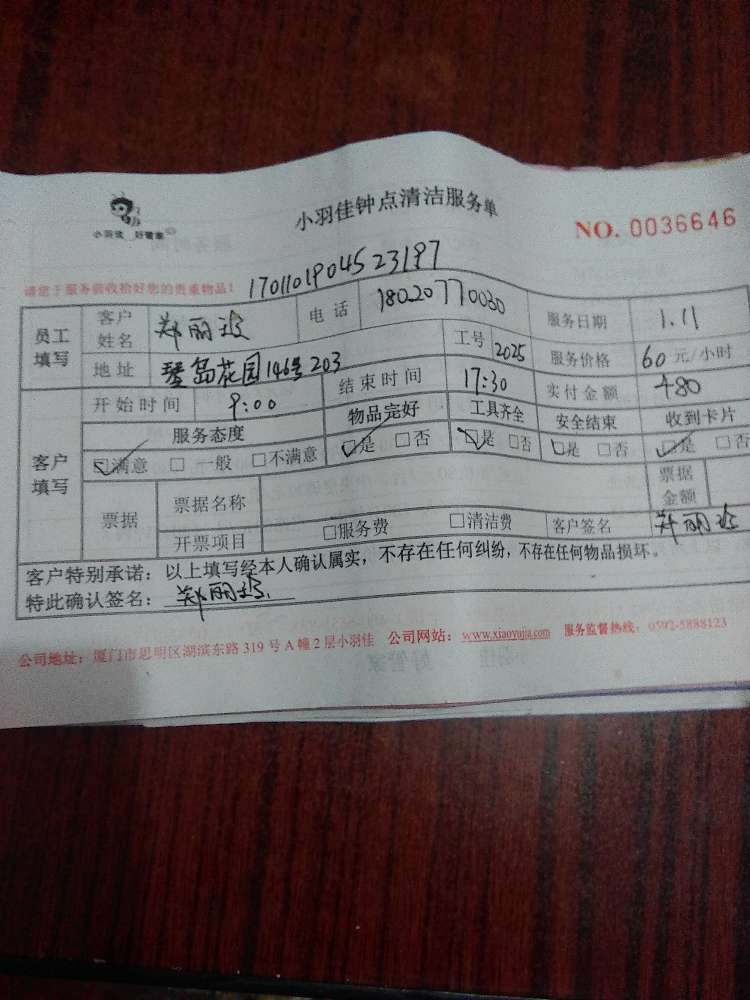 小羽佳 好管家
小羽佳钟点清洁服务单
NO. 0036646
请您于服务前收拾好您的贵重物品!
1701101904523197
员工填写 客户姓名 郑丽玻 电话 18020770030 服务日期 1.11
地址 琴岛花园146号203 工号 2025 服务价格 60元/小时
客户填写 开始时间 9:00 结束时间 17:30 实付金额 480
服务态度 物品完好 工具齐全 安全结束 收到卡片
满意 一般 不满意 是 否 是 否 是 否 是 否
票据 票据名称 票据金额
开票项目 服务费 清洁费 客户签名 郑丽玻
客户特别承诺:以上填写经本人确认属实,不存在任何纠纷,不存在任何物品损坏。
特此确认签名:郑丽玻
公司地址:厦门市思明区湖滨东路319号A幢2层小羽佳 公司网站:www.xiaoyujia.com 服务监督热线:0592-5888123